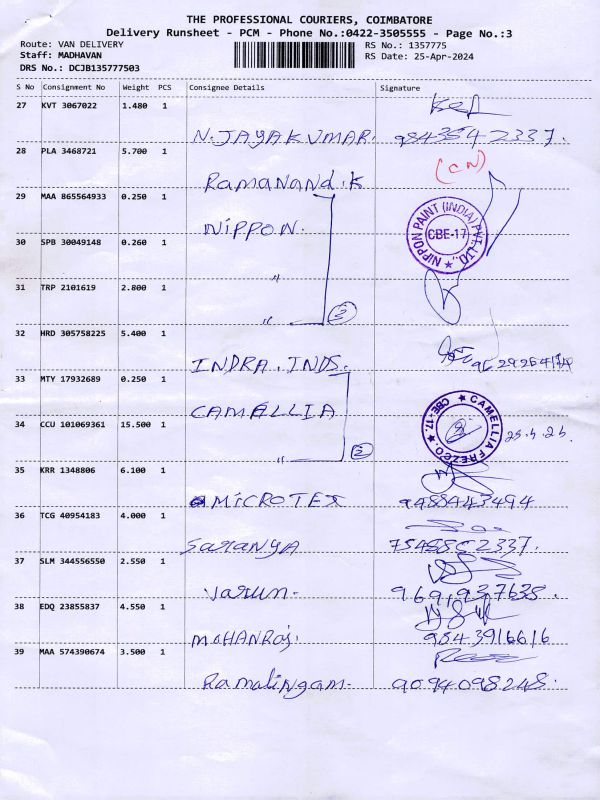 THE PROFESSIONAL COURIERS, COIMBATORE
Delivery Runsheet - PCM - Phone No.:0422-3505555 - Page No.:3
Route: VAN DELIVERY RS No.: 1357775
Staff: MADHAVAN RS Date: 25-Apr-2024
DRS No.: DCJB135777503
S No Consignment No Weight PCS Consignee Details Signature
27 KVT 3067022 1.480 1
N.JAYAKUMAR. 9843342337.
28 PLA 3468721 5.700 1
(CN)
Ramanand.K
29 MAA 865564933 0.250 1
NIPPON.
NIPPON PAINT (INDIA) PVT. LTD.,
CBE-17
30 SPB 30049148 0.260 1
"
31 TRP 2101619 2.800 1
" 3
32 HRD 305758225 5.400 1
INDRA. INDS.
33 MTY 17932689 0.250 1
CAMELLIA
CAMELLIA FREZCO.
CBE-17.
34 CCU 101069361 15.500 1
" 2
35 KRR 1348806 6.100 1
MICROTEX 9488443494
36 TCG 40954183 4.000 1
Saranya
37 SLM 344556550 2.550 1
Varun.
38 EDQ 23855837 4.550 1
MOHANRAJ. 9843916616
39 MAA 574390674 3.500 1
Ramalingam. 9094098248.